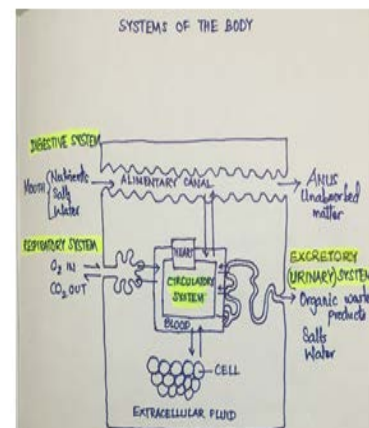 SYSTEMS OF THE BODY
DIGESTIVE SYSTEM
MOUTH
Nutrients
Salts
Water
ALIMENTARY CANAL
ANUS
Unabsorbed
matter
RESPIRATORY SYSTEM
O2 IN
CO2 OUT
HEART
CIRCULATORY
SYSTEM
BLOOD
EXCRETORY
(URINARY) SYSTEM
Organic waste
products
Salts
Water
CELL
EXTRACELLULAR FLUID